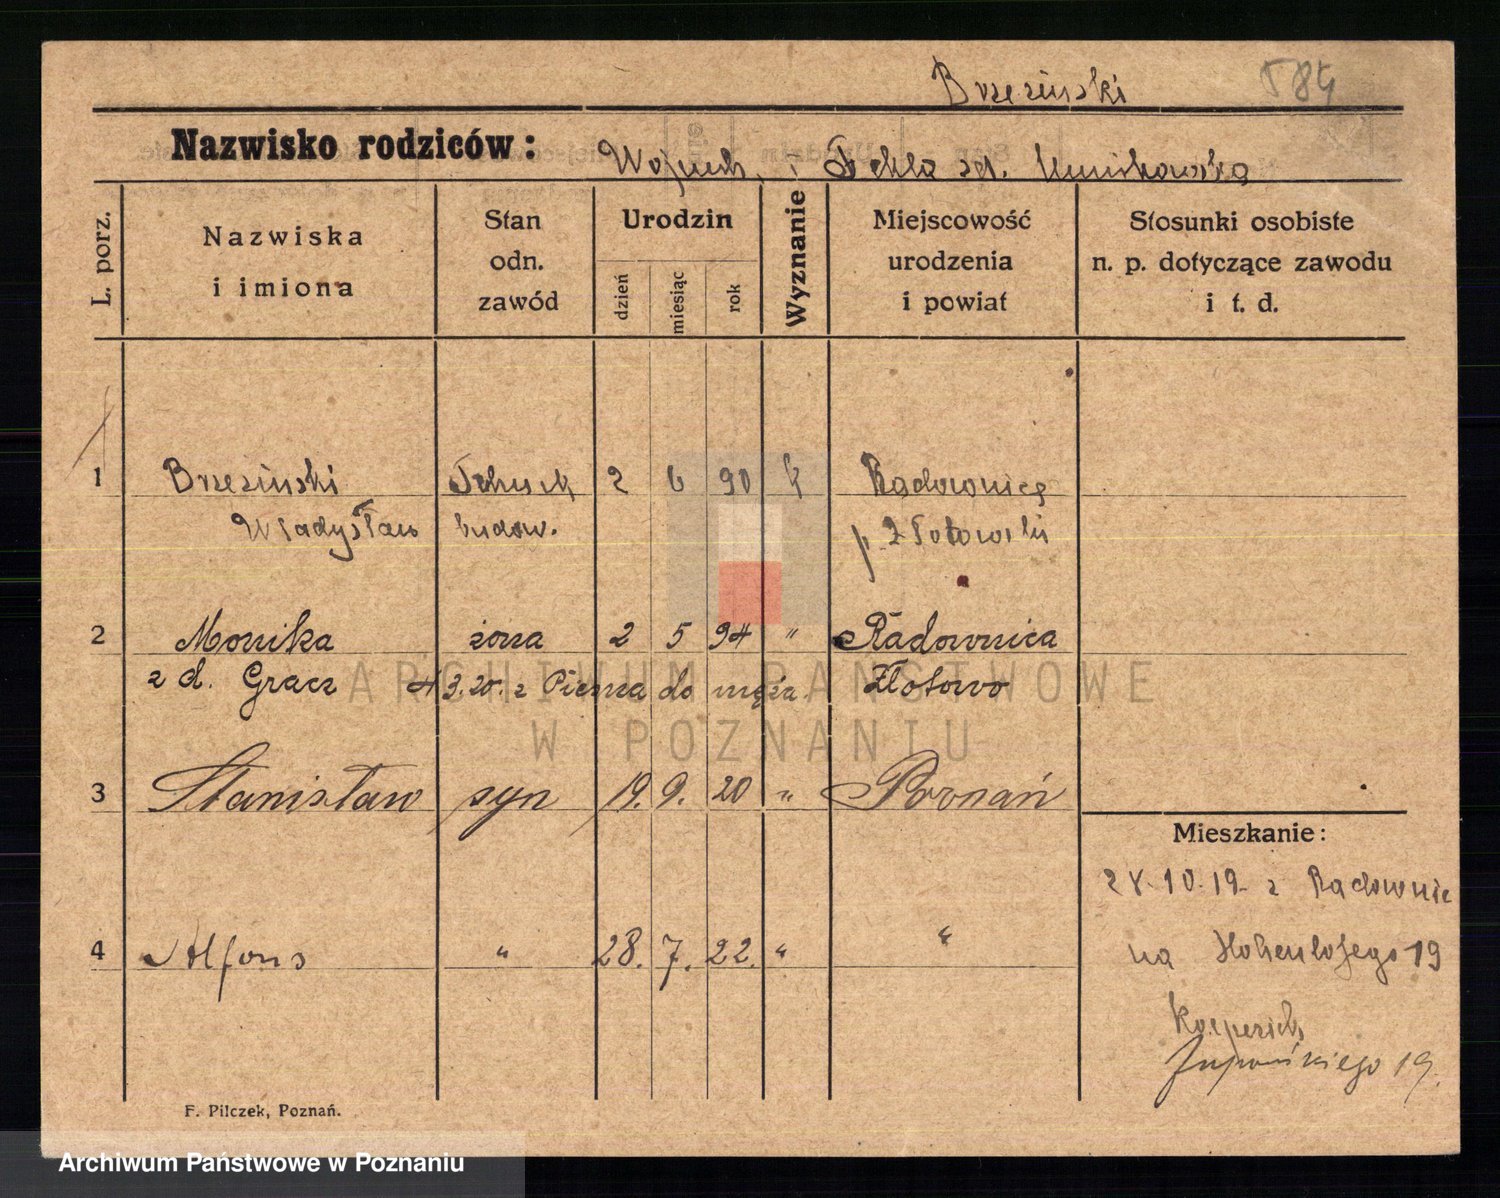 Brzeziński 584
Nazwisko rodziców: Wojciech i Tekla zd.
L. porz.
Nazwiska i imiona
Stan odn. zawód
Urodzin
dzień miesiąc rok
Wyznanie
Miejscowość urodzenia i powiat
Stosunki osobiste n. p. dotyczące zawodu i t. d.
1 Brzeziński 2 6 90 k Radownica
Władysław budow. p.
2 Monika żona 2 5 94 " Radownica
z d. Gracz 3.20. z do męża Złotowo
ARCHIWUM PAŃSTWOWE
W POZNANIU
3 Stanisław syn 19. 9. 20 " Poznań
Mieszkanie:
10.19 z
4 Alfons " 28. 7. 22. " "
na Hohenlohego 19
Żupańskiego 19.
F. Pilczek, Poznań.
Archiwum Państwowe w Poznaniu